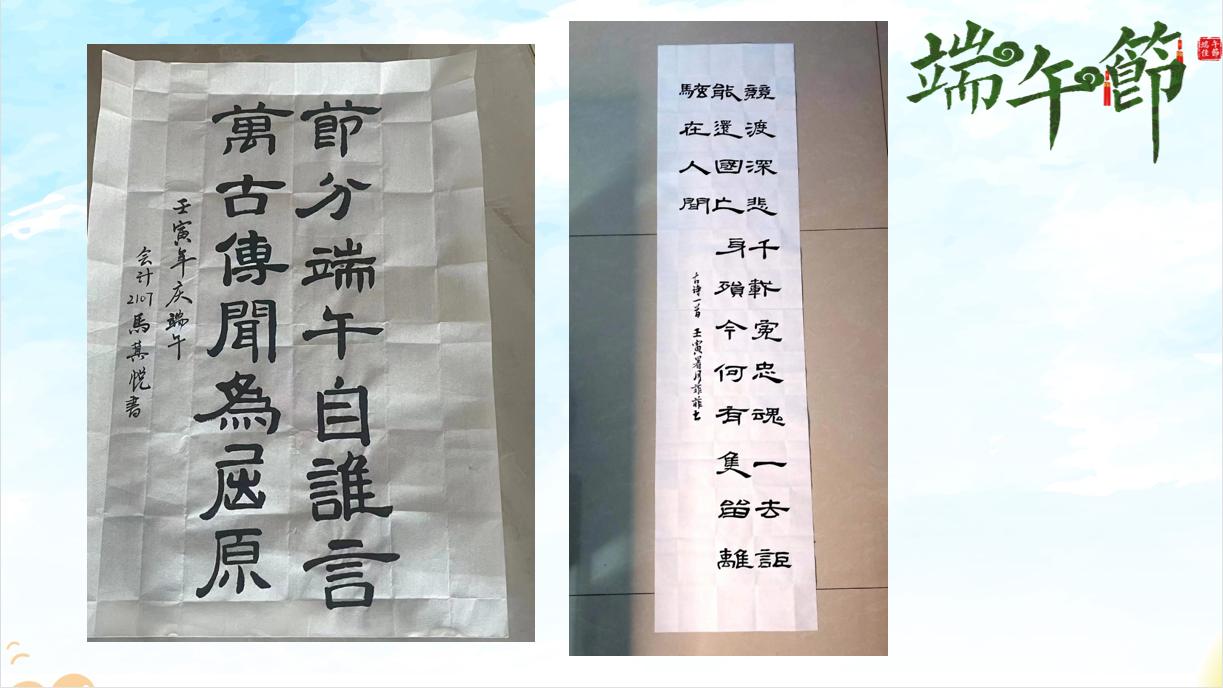 端午節
節分端午自誰言
萬古傳聞為屈原
壬寅年庆端午
会计2107馬其悦書
競渡深悲千載冤忠魂一去詎
能還國亡身殞今何有隻留離
騷在人間
古诗一首 壬寅